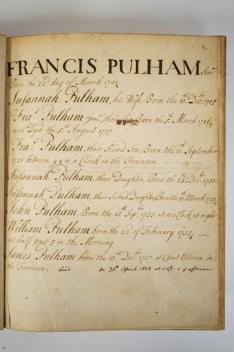 FRANCIS PULHAM Senr.
Born the 22d day of March 1702
Susannah Pulham, his Wife, Born the 10 Decr. 1707
Fras. Pulham Junr. their Son Born the 5 March 1726
and Dyed the 5 August 1727
Fras. Pulham, their Second Son, Born the 12 September
1728 between 9 & 10 a Clock in the Forenoon
Susannah Pulham, their Daughter, Born the 24 Decr. 1730
Susannah Pulham, their Second Daughter, Born the 10 March 1732
John Pulham, Born the 13th Sepr. 1733 at 8 a Clock at night
William Pulham born the 2d of February 1734
at half past 5 in the Morning
James Pulham born the 10th Decr. 1737 at past Eleven in
the Forenoon. died 30 April 1808 at afternoon